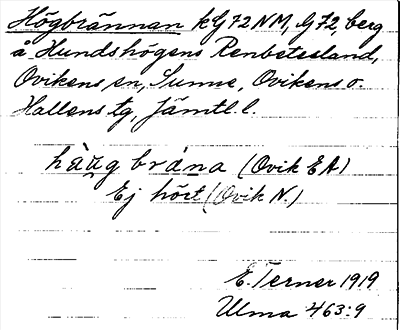 Högbrännan kG72NM, G72, berg
å Hundshögens Renbetesland,
Ovikens sn, Sunne, Ovikens o.
Hallens tg, Jämtl. l.
hàug brána (Ovik EA)
Ej hört (Ovik N.)
E. Terner 1919
Ulma 463:9